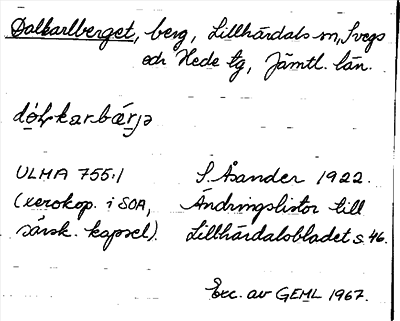 Dalkarlberget, berg, Lillhärdals sn, Svegs
och Hede tg, Jämtl. län.
dɷḷkarbærjə
ULMA 755:1 S. Åsander 1922.
(xerokop. i SOA, Ändringslistor till
särsk. kapsel). Lillhärdalsbladet s. 46.
Exc. av GEML 1967.